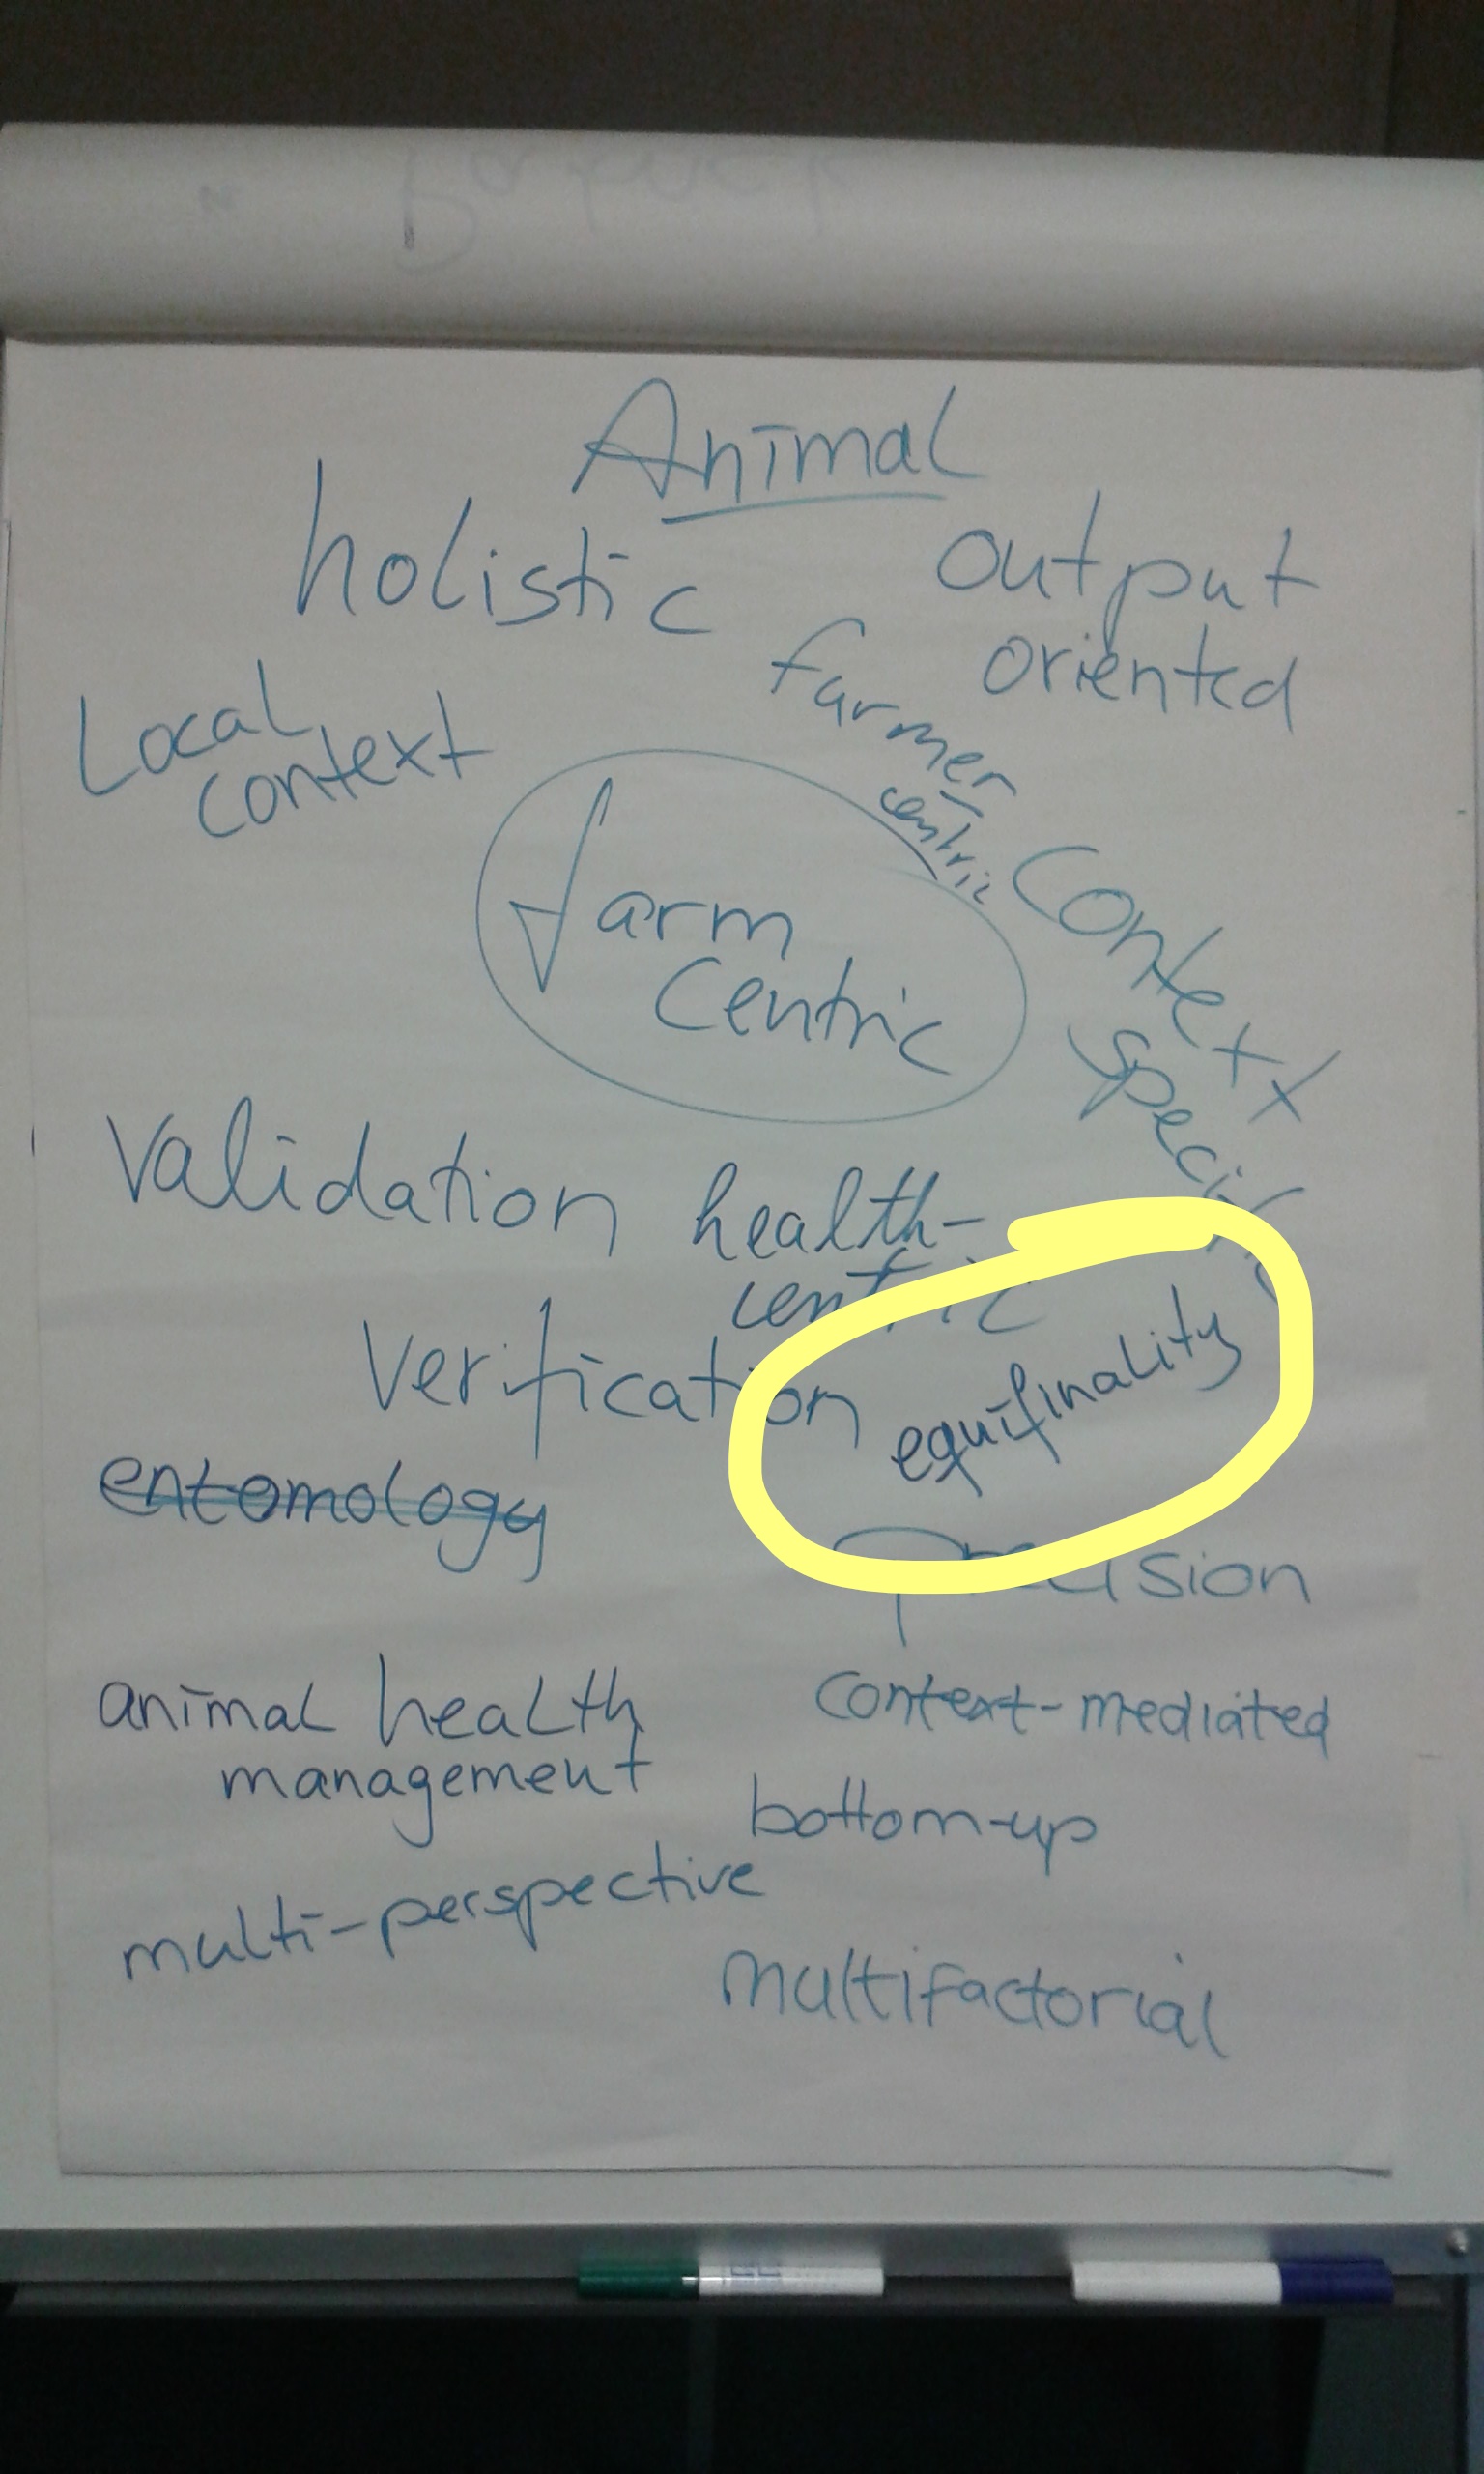 Animal
holistic
output
oriented
farmer
centric
Local
context
farm
centric
Context
specific
Validation
health-
centric
Verification
equifinality
entomology
precision
animal health
management
context-mediated
bottom-up
multi-perspective
multifactorial